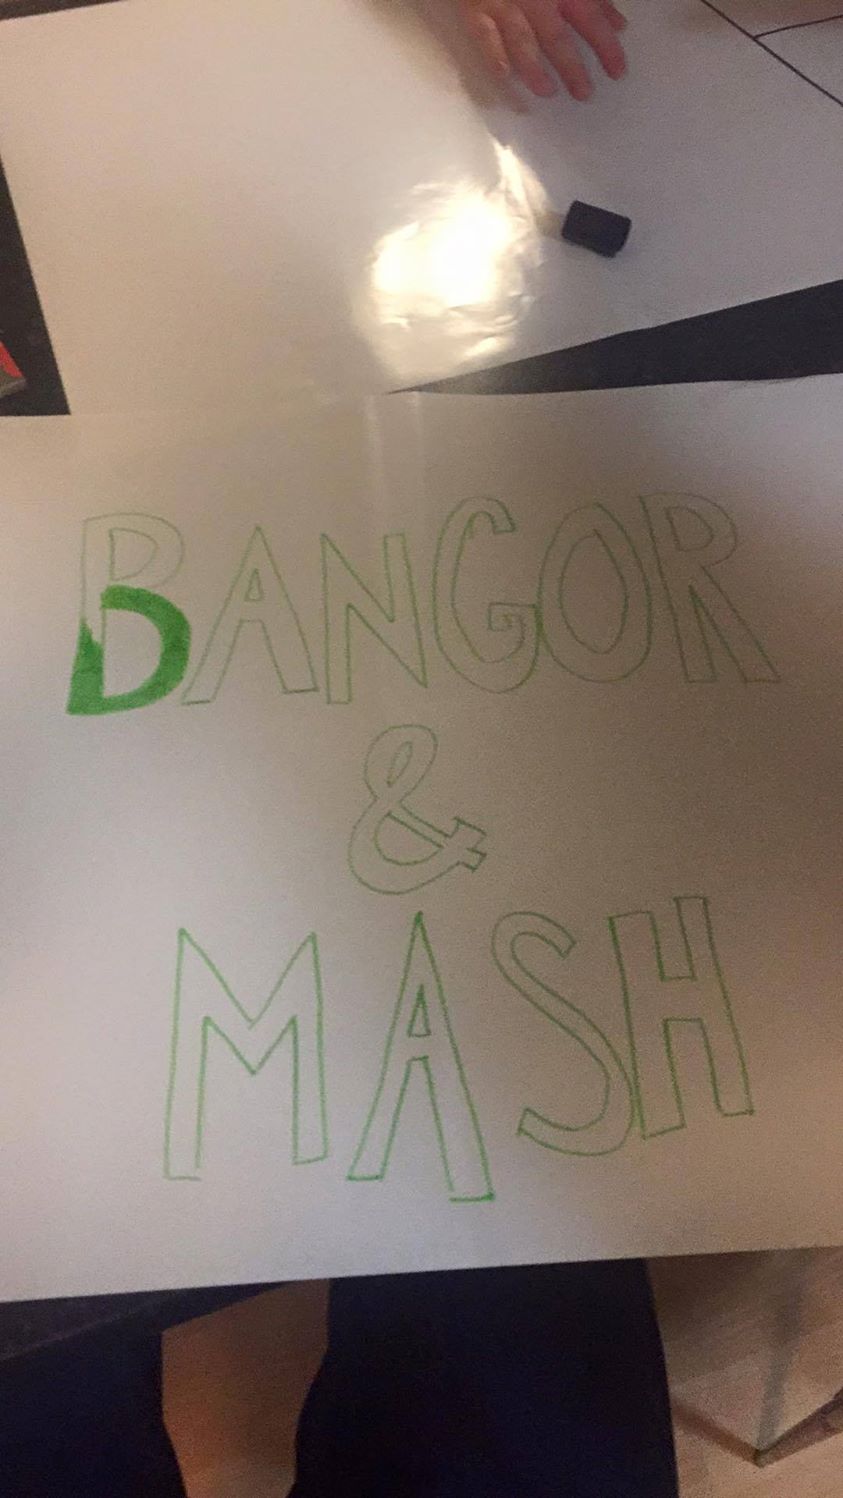 BANGOR
&
MASH